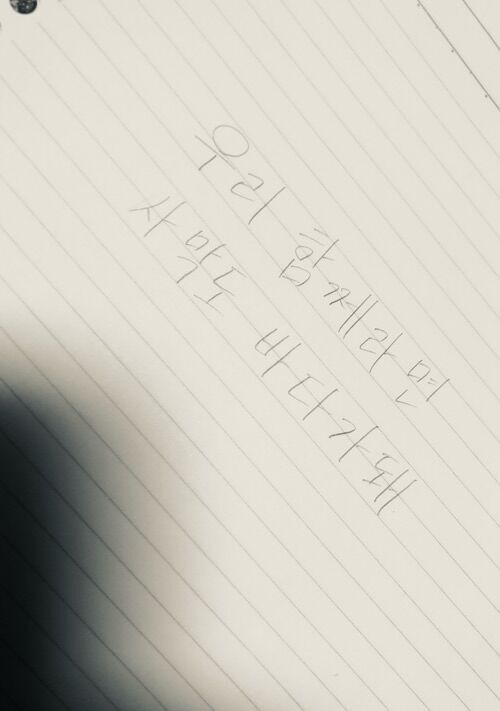 우리 함께라면
사막도 바다가돼